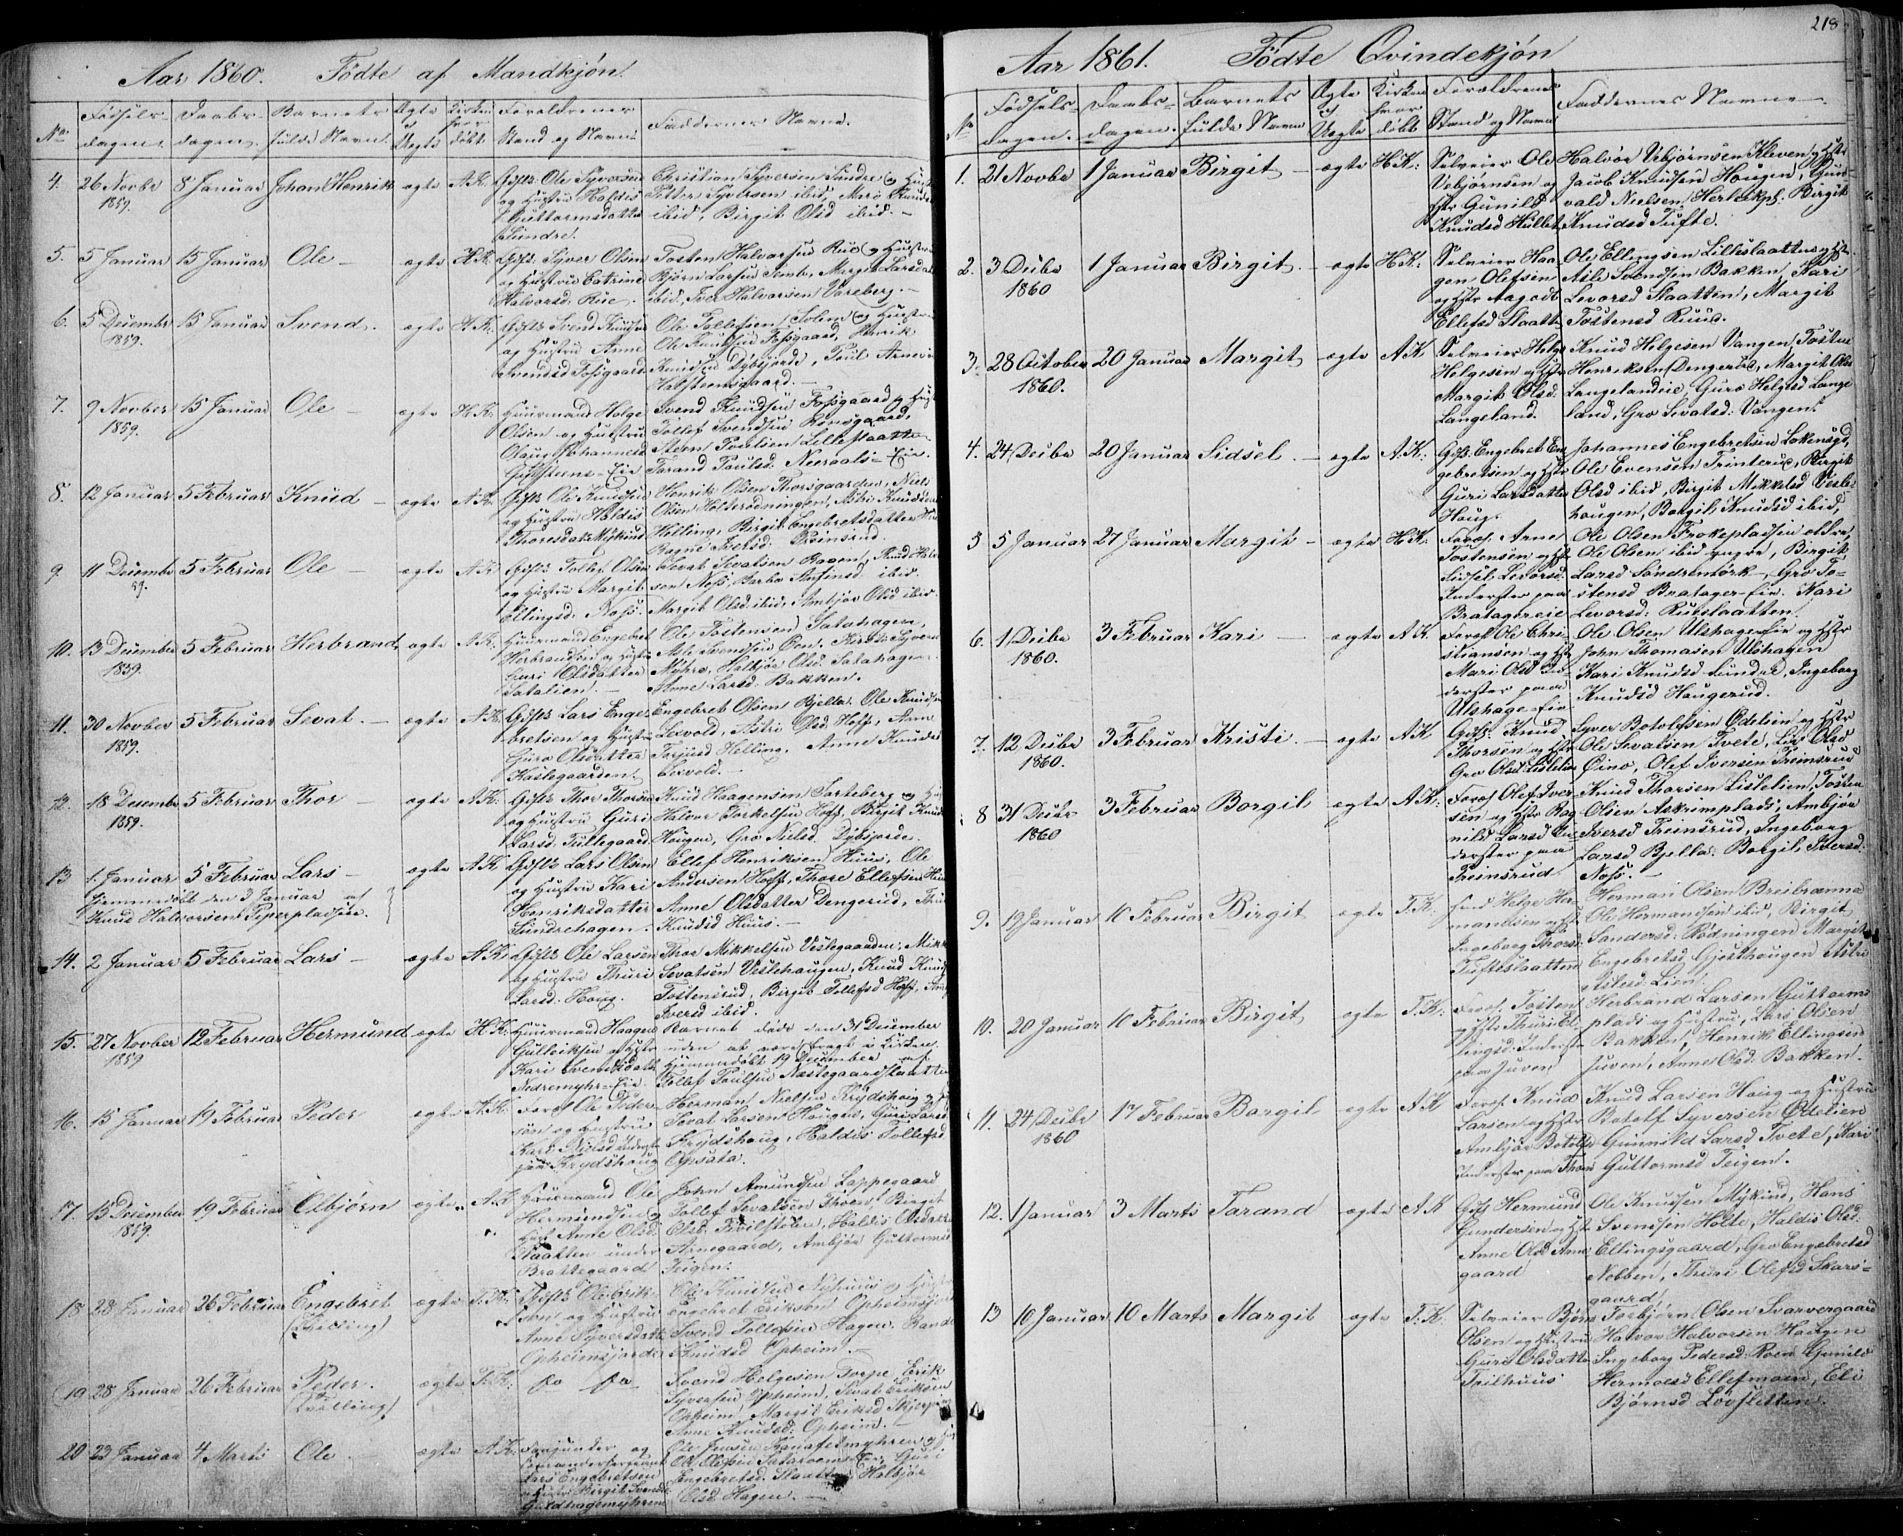 218
Aar 1860. Fødte af Mandkjøn.
No
Fødsels-
dagen.
Daabs-
dagen.
Barnets
fulde Navn.
Ægte
el
Uægte
Kirken
hvor
døbt.
Forældrenes
Stand og Navne
Faddernes Navne.
4. 26 Novbr 1859. 8 Januar Johan Henrik ægte A.K.
Gifte Ole Syversen
og Hustru Haldis
Guttormsdatter
Sundre.
Christian Syversen Sundre og Hustru
Petter Syversen ibid, Mari Knudsd
ibid, Birgit Olsd ibid.
5. 5 Januar 15 Januar Ole ægte H.K.
Gifte Syver Olsen
og Hustru Catrine
Halvorsd. Rue.
Tosten Halvorsen Rue og Hustru
Bjørn Larsen
ibid, Iver Halvorsen Vareberg.
6. 5 Decembr 1859. 15 Januar Svend. ægte H.K.
Gifte Svend Knudsen
og Hustru Anne
Svendsd Fossgaard
Ole Tollefsen Solem og Hustru
Ole Knudsen Fossgaard,
Knudsen Dybsjorde, Paul Arnesen
Halsteensgaard.
7. 9 Novber 1859. 15 Januar Ole ægte H.K.
Huusmand Helge
Olsen og Hustru
Olaug Johannesd
Svend Knudsen Fossgaard og Hust
Tollef Svendsen Rønsgaard,
Steen Poulsen Lilleslaatten
Tarand Paulsd. Neeraals-Eie.
8. 12 Januar 5 Februar Knud ægte A.K.
Gifte Ole Knudsen
og Hustru Haldis
Thoresdatr Mykind
Henrik Olsen Thorsgaarden, Niels
Olsen Holterødningen, Astri Knudsd
Helling, Birgit Engebretsdatter
Ragne Iversd. Treinsrud.
9. 11 Decembr 59. 5 Februar Ole ægte A.K.
Gifte Tollef Olsen
og Hustru Margit
Ellingsd. Nøss.
Sevat Sevatsen Hagen, Knud
sen Nøss, Barbo Anfinsd ibid.
Margit Olsd ibid, Ambjør Olsd ibid.
10. 13 Decembr 1859. 5 Februar Herbrand ægte A.K.
Huusmand Engebret
Herbrandsen og Hustru
Guri Olsdatter
Satalien.
Ole Tostensen Satahagen,
Asle Svendsen Øen, Kirsti Syversd
Myhre, Halbjør Olsd. Satahagen
Anne Larsd. Bakken.
11. 30 Novber 1859. 5 Februar Sevat. ægte A.K.
Gifte Lars Enge-
bretsen og Hustru
Guro Olsdatter
Kaslegaarden.
Engebret Olsen Bjella. Ole Knudsen
Lexvold, Astri Olsd Hoff, Anne
Torjusd Helling. Anne Knudsd
Lexvold.
12. 18 Decembr 1859. 5 Februar Thor ægte A.K.
Gifte Thor Thorsen
og Hustru Guri
Larsd. Tuftegaard
Knud Haagensen Sørteberg og
Halvor Torkelsen Hoff, Birgit Knudsd
Haugen, Gro Nielsd. Dybsjorde.
13 1. Januar 5 Februar Lars ægte A.K.
Hjemmedøbt den 3 Januar af
Knud Halvorsen Piperpladsen.
Gifte Lars Olsen
og Hustru Kari
Henriksdatter
Sundrehagen.
Ellef Henriksen Huus, Ole
Andersen Hoff, Thore Ellefsen Huus
Anne Olsdatter Dengerud, Thuri
Knudsd Huus.
14. 2 Januar 5 Februar Lars ægte A.K.
Gifte Ole Larsen
og Hustru Thuri
Larsd. Houg.
Thor Mikkelsen Veslegaarden, Mikk
Sevatsen Veslehaugen, Knud Knuds
Tostensrud, Birgit Tollefsd Hoff,
Iversd ibid.
15. 27 Novber 1859 12 Februar Hermund ægte H.K.
Huusmand Haagen
Gulleiksen og Hstr
Kari Svendsdatter
Nedremyhr-Eie.
Barnet døde den 31 December
uden at være bragt i Kirken.
Hjemmedøbt 19 December af
Tollef Poulsen Næstegaardslaatten
16. 15 Januar 19 Februar Peder ægte A.K.
Foræl Ole Peder-
sen og Hustru
Kari Nielsd
paa Krydshaug
Herman Nielsen Krydshaug og
Sevat Larsen Haugen, Guri Larsd
Krydshaug, Haldis Tollefsd
Opsata.
17. 15 December 1859. 19 Februar Olbjørn ægte A.K.
Huusmand Ole
Hermundsen og
Hust Anne Olsd.
Slaatten under
Brattegaard
John Amundsen Lappegaard
Tollef Sevatsen Thoen, Birgit
Olsd. Haldis Olsdatter
Arnegaard, Ambjør Guttormsd
Teigen.
18 28 Januar 26 Februar Engebret (Tvilling) ægte T.K.
Gifte Ole Erik-
sen og Hustru
Anne Syversdatter
Opheimsjordet
Ole Knudsen Nyhuus og Hustru
Engebret Eriksen Opheimsjordet
Svend Tollefsen Hagen, Rande
Knudsd Opheim.
19 28 Januar 26 Februar Peder. (Tvilling) ægte T.K. Do Do
Svend Helgesen Torpe, Erik
Syversen Opheim, Sevat Eriksen
Opheim, Margit Eriksd Skjerping
Anne Knudsd. Opheim.
20 23 Januar 4 Marts Ole ægte A.K.
og
Lars Engebretsen
og Hustru Birgit Svendsd
Guldhagemyhren
Ole Jensen Kanafetmyhren og
Ole Olesen Guri
Engebretsd. Slaatten, Halbjør
Olsd. Hagen.
Aar 1861. Fødte Qvindekjøn
No
Fødsels-
dagen.
Daabs-
dagen.
Barnets
fulde Navn
Ægte
el
Uægte
Kirken
hvor
døbt
Forældrenes
Stand og Navne
Faddernes Navne
1. 21 Novbr 1 Januar Birgit ægte H.K:
Selveier Ole
Vebjørnsen og
Hstr Gunild
Knudsd Hullet
Halvor Vebjørnsen Kleven og Hstr
Jacob Knudsen Haugen, Gun-
vald Nielsen Birgit
Knudsd Tufte.
2. 3 Decbr 1860 1 Januar Birgit. ægte H.K:
Selveier Haa-
gen Olefsen
og Hstr Aagodt
Ellefsd Slaatt-
Ole Ellingsen Lilleslaatten og Hstr
Asle Svendsen Bakken, Kari
Levorsd Slaatten, Margit
Tostensd Ruud.
3. 28 October 1860. 20 Januar Margit ægte A.K
Selveier Helge
Helgesen og Hstr
Margit Olsd.
Langeland.
Knud Helgesen Vangen, Tosten
Henriksen Dengerud, Margit Olsd
Langelandeie, Guro Helgesd Lange
land, Gro Sevatsd: Vangen.
4. 24 Decbr 20 Januar Sidsel ægte A.K:
Gift. Engebret En-
gebretsen og Hstr
Guri Larsdatter
Houg.
Johannes Engebretsen Løkensgd,
Ole Evensen Trinterud, Birgit
Olsd ibid, Birgit Mikkelsd Vesle-
haugen, Borgil Knudsd ibid,
5 5 Januar 27 Januar Margit ægte H.K
Foræl. Arne
Tostensen og Hstr
Sidsel Levorsd.
Inderster paa
Bratagereie
Ole Olsen Trokepladsen eldre,
Ole Olsen ibid yngre, Birgit
Larsd Søndremørk, Gro To-
stensd Bratager-Eie. Kari
Levorsd: Rueslaatten.
6. 1 Decbr 1860. 3 Februar Kari ægte A.K
Foræl Ole Chri-
stiansen og Hstr
Mari Olsd In-
derster paa
Ulshage-Eie
Ole Olsen Ulshage-Eie og Hstr
John Thomasen Ulshagen
Kari Knudsd Sundre, Ingeborg
Knudsd Haugerud.
7. 12 Decbr 1860. 3 Februar Kristi. ægte A.K
Gift. Knud
Thorsen og Hstr
Gro Olsd. Lislelien
Syver Botolfsen Ødelien og Hstr
Ole Sevatsen Tvete, Liv Olsd
Øino, Olef Iversen Treinsrud
8 31 Decbr 1860 3 Februar Borgil ægte A.K:
Foræl Olef Iver-
sen og Hstr Rag-
nild Larsd In-
derster paa
Treinsrud
Knud Thorsen Lislelien, Tosten
Olsen Askrimplads, Ambjør
Iversd Treinsrud, Ingeborg
Larsd Bjella. Borgil Iversd.
Nøss.
9. 19 Januar 10 Februar Birgit ægte T.K:
Helge Her-
mansen og Hst
Ingeborg Thorsd.
Tufteslaatten
Herman Olsen Breibrænna
Ole Hermansen ibid, Birgit
Sandersd: Rødningen Margit
Engebretsd. Gjesthaugen Astri
Aslesd. Lien.
10. 20 Januar 10 Februar Birgit ægte T.K:
Foræl. Tosten
og Hstr Thuri El-
lingsd: Inderste
paa Juven
Herbrand Larsen Guttorms
plads og Hustru, Lars Olsen
Bakken, Henrik Ellingsen
Juven, Anne Olsd. Bakken.
11. 24 Decbr 1860 17 Februar Borgil ægte A.K
Foræl. Knud
Larsen og Hstr
Ambjør Botolfsd
Inderster paa Thoen
Knud Larsen Haug og Hustru
Botolf Syversen Ødelien
Gunnild Larsd Tvete, Kari
Guttormsd Teigen.
12. 1 Januar 3 Marts Tarand ægte A.K
Gift Hermund
Gundersen og Hst
Anne Olsd Arne
gaard
Ole Knudsen Mykind, Hans
Svensen Holte, Haldis Olsd.
Ellingsgaard, Gro Engebretsd
Nobben, Thuri Olefsd Skars-
gaard.
13 16 Januar 10 Marts Margit ægte T.K
Selveier Bjørn
Olsen og Hustru
Guri Olsdatter
Trilhuus
Torbjørn Olsen Svarvergaard
Halvor Halvorsen Haugen
Ingeborg Pedersd: Roen Gunild
Hermoesd Ellefmoen, Eli
Bjørnsd Løvsletten.